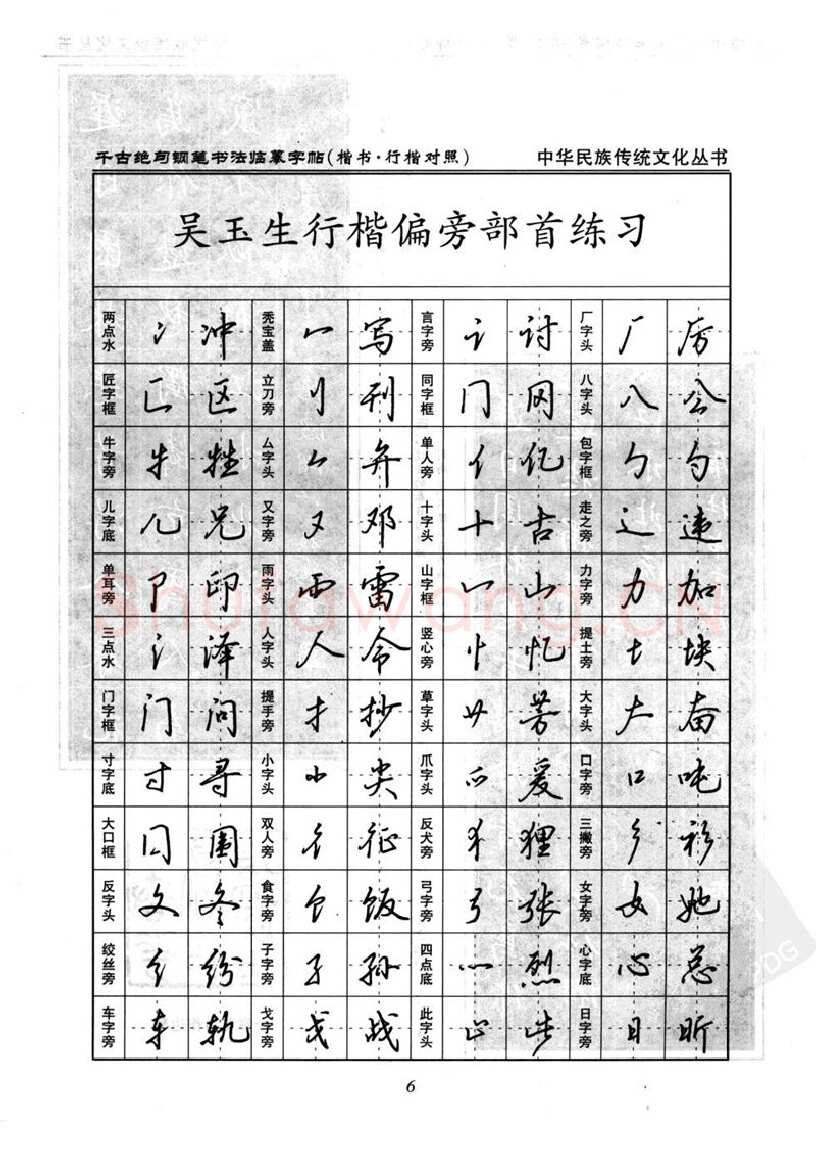 千古绝句钢笔书法临摹字帖(楷书·行楷对照) 中华民族传统文化丛书
吴玉生行楷偏旁部首练习
两点水 冫 冲 秃宝盖 冖 写 言字旁 讠 讨 厂字头 厂 房
匠字框 匚 区 立刀旁 刂 刊 同字框 冂 网 八字头 八 公
牛字旁 牜 牲 厶字头 厶 弁 单人旁 亻 亿 包字框 勹 勺
儿字底 儿 兄 又字旁 又 邓 十字头 十 古 走之旁 辶 违
单耳旁 卩 印 雨字头 雨 雷 山字框 凵 山 力字旁 力 加
三点水 氵 泽 人字头 人 令 竖心旁 忄 忆 提土旁 土 块
门字框 门 问 提手旁 扌 抄 草字头 艹 芳 大字头 大 奋
寸字底 寸 寻 小字头 小 尖 爪字头 爫 爱 口字旁 口 吨
大口框 囗 圈 双人旁 彳 征 反犬旁 犭 狸 三撇旁 彡 彩
反字头 夂 冬 食字旁 饣 饭 弓字旁 弓 张 女字旁 女 她
绞丝旁 纟 纷 子字旁 子 孙 四点底 灬 烈 心字底 心 总
车字旁 车 轨 戈字旁 戈 战 此字头 止 些 日字旁 日 昕
Shufawang.CN
PDG
6